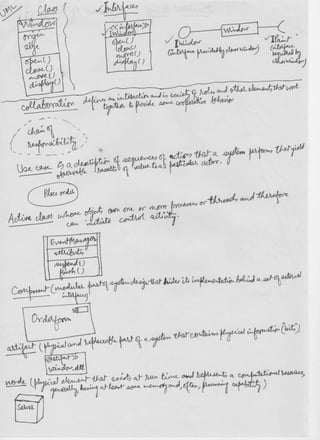 UML
Class
Window
origin
size
open()
close()
move()
display()
✓ Interfaces
<<interface>>
IWindow
open()
close()
move()
display()
Window
✓ IWindow
(interface provided by class window)
✓ IPaint
(interface
required by
class window)
collaboration defines an interaction and is society of roles and other elements that work
together to provide some cooperative behavior
chain of
responsibility
Use case is a description of sequences of actions that a system performs that yield
observable results of value to a particular actor.
Place order
Active class whose objects own one or more processes or threads and therefore
can initiate control activity.
EventManager
attributes
suspend()
flush()
Component (modular part of system design that hides its implementation behind a set of external
interfaces)
Orderform
artifact (physical and replaceable part of a system that contains physical information (bits)
<<artifact>>
window.dll
node (physical element that exists at run time and represents a computational resources,
generally having at least some memory and, often, processing capability)